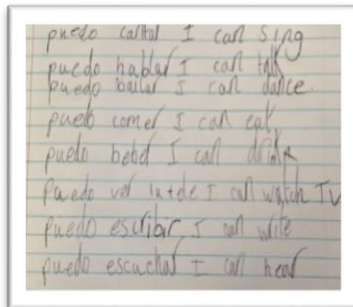 puedo cantar I can sing
puedo hablar I can talk
puedo bailar I can dance.
puedo comer I can eat
puedo beber I can drink
Puedo ver latele I can watch TV
puedo escribir I can write
puedo escuchar I can hear